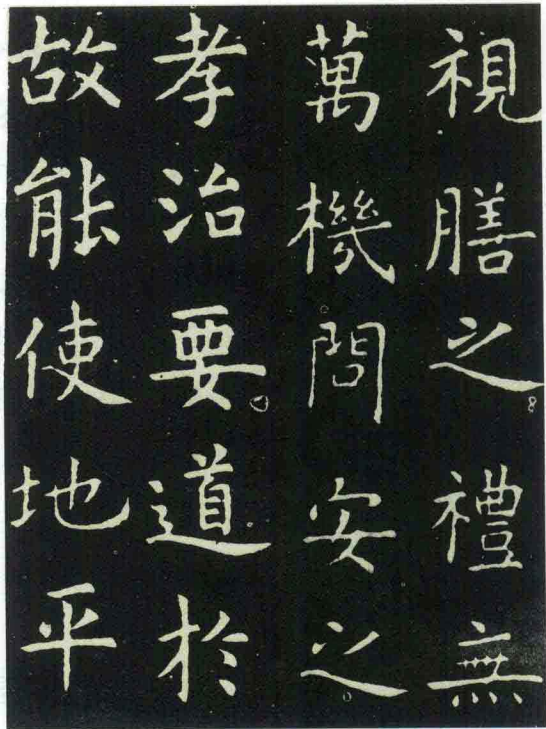 視膳之禮無
萬機問安之
孝治要道於
故能使地平